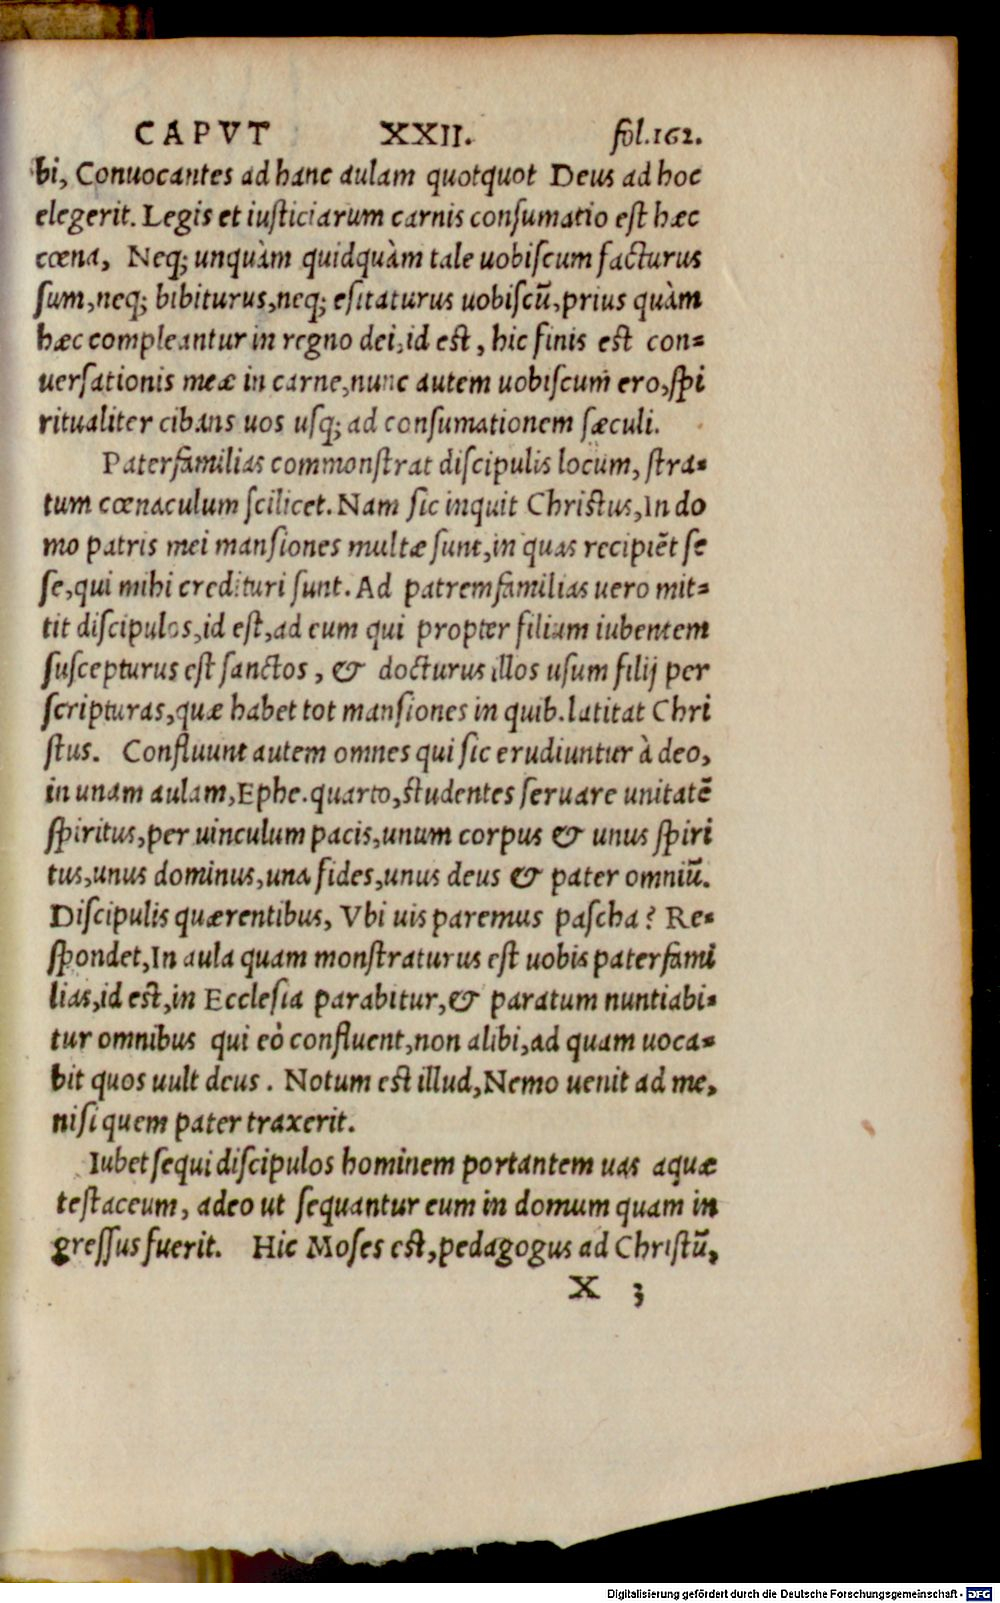 CAPVT XXII. fol.162.
bi, Conuocantes ad hanc aulam quotquot Deus ad hoc
elegerit. Legis et iusticiarum carnis consumatio est hæc
cœna, Neq; unquàm quidquàm tale uobiscum facturus
sum, neq; bibiturus, neq; esitaturus uobiscū, prius quàm
hæc compleantur in regno dei, id est, hic finis est con-
uersationis meæ in carne, nunc autem uobiscum ero, spi
ritualiter cibans uos usq; ad consumationem sæculi.
Paterfamilias commonstrat discipulis locum, stra-
tum cœnaculum scilicet. Nam sic inquit Christus, In do
mo patris mei mansiones multæ sunt, in quas recipiēt se
se, qui mihi credituri sunt. Ad patremfamilias uero mit-
tit discipulos, id est, ad eum qui propter filium iubentem
suscepturus est sanctos, & docturus illos usum filij per
scripturas, quæ habet tot mansiones in quib. latitat Chri
stus. Confluunt autem omnes qui sic erudiuntur à deo,
in unam aulam, Ephe. quarto, studentes seruare unitatē
spiritus, per uinculum pacis, unum corpus & unus spiri
tus, unus dominus, una fides, unus deus & pater omniū.
Discipulis quærentibus, Vbi uis paremus pascha? Re-
spondet, In aula quam monstraturus est uobis paterfami
lias, id est, in Ecclesia parabitur, & paratum nuntiabi-
tur omnibus qui eò confluent, non alibi, ad quam uoca-
bit quos uult deus. Notum est illud, Nemo uenit ad me,
nisi quem pater traxerit.
Iubet sequi discipulos hominem portantem uas aquæ
testaceum, adeo ut sequantur eum in domum quam in
gressus fuerit. Hic Moses est, pedagogus ad Christū,
X 3
Digitalisierung gefördert durch die Deutsche Forschungsgemeinschaft - DFG